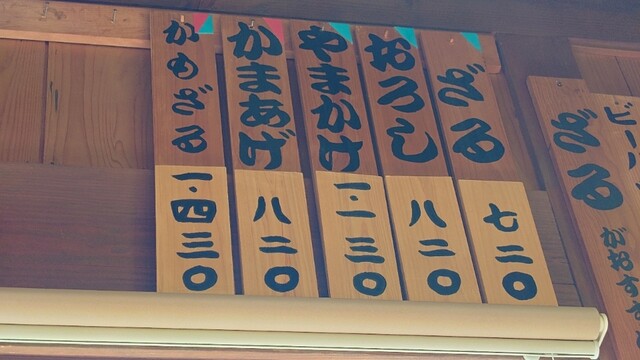 ざる
七二〇
おろし
八二〇
やまかけ
一.一三〇
かまあげ
八二〇
かもざる
一.四三〇
ざる
ビール
がおすす